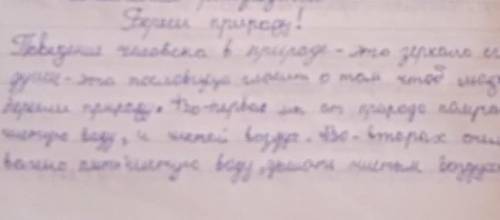 Береги природу!
Поведение человека в природе - это зеркало ег
души - эта пословица гласит о том чтоб люди
берегли природу. Во-первых мы от природы получа
чистую воду, и чистей воздух. Во-вторых очен
важно пить чистую воду, дышать чистым воздухо